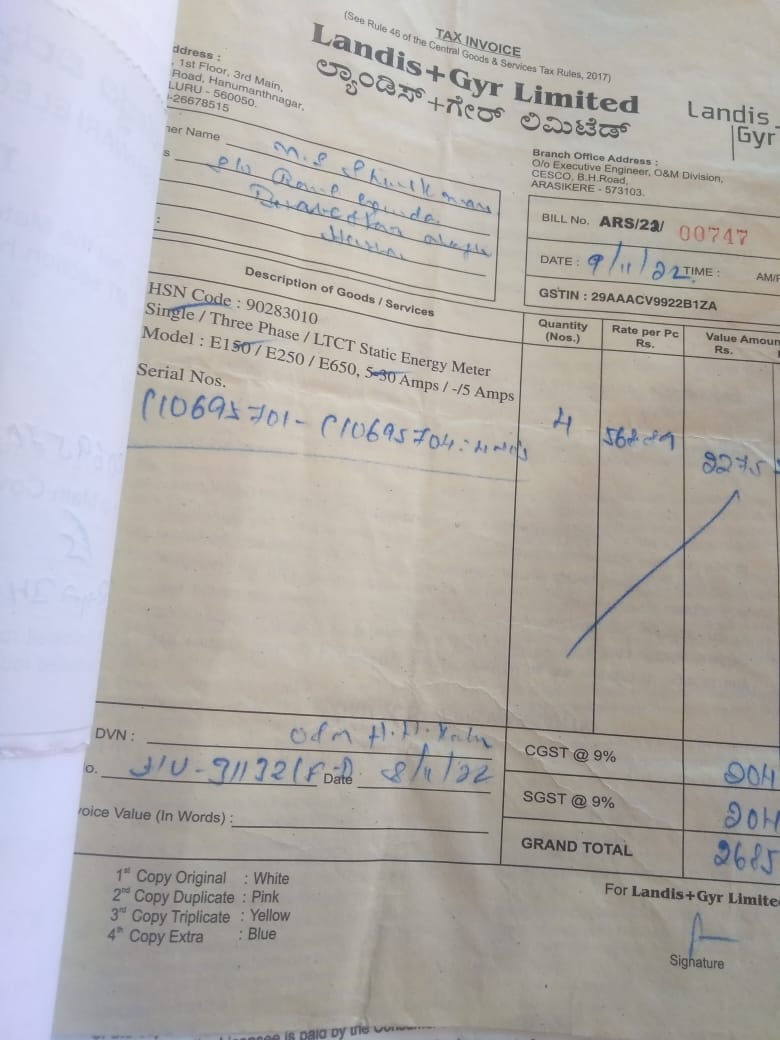 TAX INVOICE
(See Rule 46 of the Central Goods & Services Tax Rules, 2017)
Landis+Gyr Limited
ಲ್ಯಾಂಡಿಸ್+ಗೇರ್ ಲಿಮಿಟೆಡ್
Landis
Gyr
ddress :
, 1st Floor, 3rd Main,
Road, Hanumanthnagar,
LURU - 560050.
-26678515
Branch Office Address :
O/o Executive Engineer, O&M Division,
CESCO, B.H.Road,
ARASIKERE - 573103.
er Name
BILL No. ARS/22/ 00747
DATE : 9/11/22 TIME : AM/P
GSTIN : 29AAACV9922B1ZA
Description of Goods / Services
Quantity (Nos.)
Rate per Pc Rs.
Value Amoun Rs.
HSN Code : 90283010
Single / Three Phase / LTCT Static Energy Meter
Model : E150 / E250 / E650, 5-30 Amps / -/5 Amps
Serial Nos.
P10695701 - P10695704
4
2275
DVN : O&M
o. Date 8/11/22
voice Value (In Words) :
CGST @ 9% 204
SGST @ 9% 204
GRAND TOTAL 2685
1st Copy Original : White
2nd Copy Duplicate : Pink
3rd Copy Triplicate : Yellow
4th Copy Extra : Blue
For Landis+Gyr Limite
Signature
is paid by the